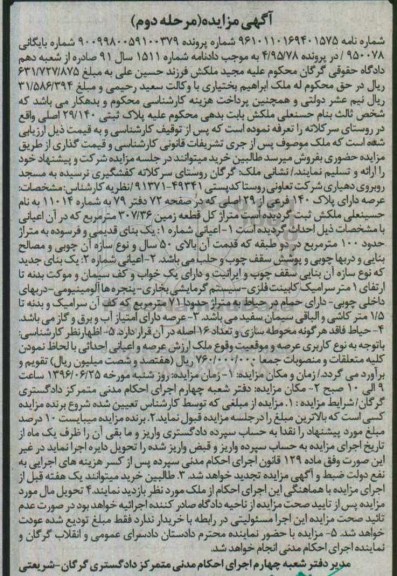 آگهی مزایده(مرحله دوم)
شماره نامه ۹۶۱۰۱۱۰۱۶۹۴۰۱۵۷۵ شماره پرونده ۹۰۰۹۹۸۰۰۵۹۱۰۰۳۷۹ شماره بایگانی
۹۵۰۰۷۸ / در پرونده ۴/۹۵/۷۸ به موجب دادنامه شماره ۱۵۱۱ سال ۹۱ صادره از شعبه دهم
دادگاه حقوقی گرگان محکوم علیه مجید ملکش فرزند حسین علی به مبلغ ۶۳۱/۷۳۷/۸۷۵
ریال در حق محکوم له ملک ابراهیم بختیاری با وکالت سعید رحیمی و مبلغ ۳۱/۵۸۶/۳۹۴
ریال نیم عشر دولتی و همچنین پرداخت هزینه کارشناسی محکوم و بدهکار می باشد که
شخص ثالث بنام حسنعلی ملکش بابت بدهی محکوم علیه پلاک ثبتی ۲۹/۱۴۰ اصلی واقع
در روستای سرکلاته را معرفی نموده است که پس از توقیف کارشناسی و به قیمت ذیل ارزیابی
شده است که ملک موصوف پس از جری تشریفات قانونی کارشناسی و قیمت گذاری از طریق
مزایده حضوری بفروش میرسد طالبین خرید میتوانند در جلسه مزایده شرکت و پیشنهاد خود
را ارائه و تسلیم نمایند/ نشانی ملک: گرگان روستای سرکلاته کفشگیری نرسیده به مسجد
روبروی دهیاری شرکت تعاونی روستا کدپستی ۴۹۳۴۱-۹۱۳۷۱ /نظریه کارشناس:مشخصات:
عرصه دارای پلاک ۱۴۰ فرعی از ۲۹ اصلی که در صفحه ۷۳ دفتر ۷۹ به شماره ۱۱۰۱۴ به نام
حسینعلی ملکش ثبت گردیده است متراژ کل قطعه زمین ۳۰۷/۳۶ مترمربع که در آن اعیانی
با مشخصات ذیل احداث گردیده است ۱- اعیانی شماره ۱: یک بنای قدیمی و فرسوده به متراژ
حدود ۱۰۰ مترمربع در دو طبقه که قدمت آن بالای ۵۰ سال و نوع سازه آن چوبی و مصالح
بنایی و دربها چوبی و پوشش سقف چوب و حلب می باشد. ۲-اعیانی شماره ۲: یک بنای جدید
که نوع سازه آن بنایی سقف چوب و ایرانیت و دارای یک خواب و کف سیمان و موکت بدنه تا
ارتفاع ۱ متر سرامیک کابینت فلزی-سیستم گرمایشی بخاری-پنجره ها آلومینیومی-دربهای
داخلی چوبی- دارای حمام در حیاط به متراژ حدود ۷۱ مترمربع که کف آن سرامیک و بدنه تا
۱/۵ متر کاشی و الباقی سیمان سفید می باشد. ۳-عرصه دارای امتیاز آب و برق و گاز می باشد.
۴-حیاط فاقد هرگونه محوطه سازی و تعداد ۱۶ اصله در آن قرار دارد. ۵-اظهارنظر کارشناسی:
باتوجه به نوع کاربری عرصه و موقعیت وقوع ملک ارزش عرصه و اعیانی احداثی با لحاظ نمودن
کلیه متعلقات و منصوبات جمعا ۷۶۰/۰۰۰/۰۰۰ ریال (هفتصد و شصت میلیون ریال) تقویم و
برآورد می گردد /زمان و مکان مزایده: ۱- زمان مزایده: روز شنبه مورخه ۱۳۹۶/۰۶/۲۵ ساعت
۹ الی ۱۰ صبح ۲- مکان مزایده: دفتر شعبه چهارم اجرای احکام مدنی متمرکز دادگستری
گرگان/شرایط مزایده : ۱. مزایده از مبلغی که توسط کارشناس تعیین شده شروع برنده مزایده
کسی است که بالاترین مبلغ را درجلسه مزایده قبول نماید.۲. برنده مزایده میبایست ۱۰ درصد
مبلغ مورد پیشنهاد را نقدا به حساب سپرده دادگستری واریز و ما بقی آن را ظرف یک ماه از
تاریخ اجرای مزایده به حساب سپرده واریز و قبض واریز شده را تحویل دایره اجرا نماید در غیر
این صورت وفق ماده ۱۳۹ قانون اجرای احکام مدنی سپرده پس از کسر هزینه های اجرایی به
نفع دولت ضبط و آگهی مزایده تجدید خواهد شد. ۳. طالبین خرید میتوانند یک هفته قبل از
اجرای مزایده با هماهنگی این اجرای احکام از ملک مورد نظر بازدید نمایند.۴ تحویل مال مورد
مزایده پس از تایید صحت مزایده از ناحیه دادگاه صادر کننده اجرائیه خواهد بود در صورت عدم
تائید صحت مزایده این اجرا مسئولیتی در رابطه با خریدار ندارد فقط مبلغ تودیع شده عودت
خواهد شد. ۵- مزایده با حضور نماینده محترم دادستان دادسرای عمومی و انقلاب گرگان و
نماینده اجرای احکام مدنی انجام خواهد شد.
مدیر دفتر شعبه چهارم اجرای احکام مدنی متمرکز دادگستری گرگان-شریعتی